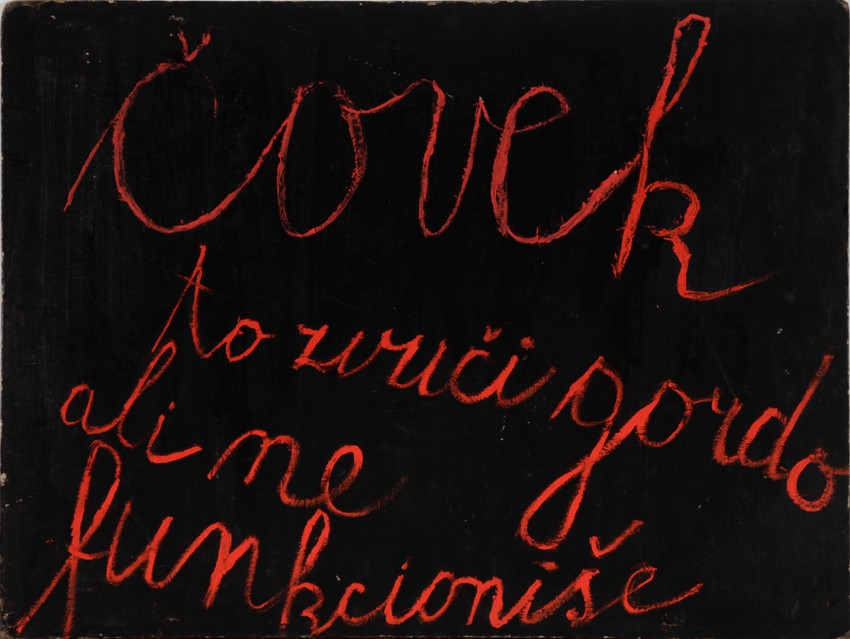 čovek
to zvuči gordo
ali ne
funkcioniše